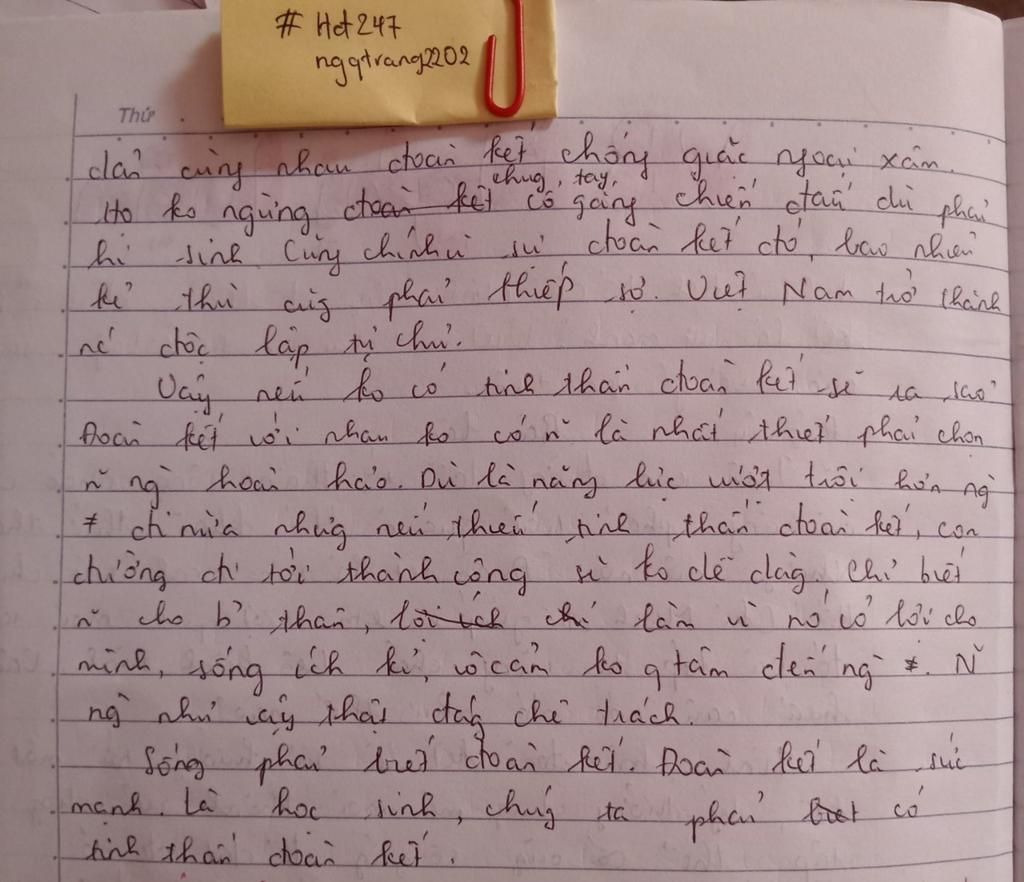 # Hct247
ngqtrang2202
Thứ
dân cùng nhau đoàn kết chống giặc ngoại xâm.
chug, tay,
Họ ko ngừng đoàn kết cố gắng chiến đấu dù phải
hi sinh. Cũng chính vì sự đoàn kết đó, bao nhiêu
kẻ thù cũg phải khiếp sợ. Việt Nam trở thành
nc độc lập tự chủ.
Vậy nếu ko có tinh thần đoàn kết sẽ ra sao
Đoàn kết với nhau ko có n~ là nhất thiết phải chọn
n~ ng` hoàn hảo. Dù là năng lực vượt trội hơn ng`
≠ đi nữa nhưg nếu thiếu tinh thần đoàn kết, con
đường đi tới thành công sẽ ko dễ dàg. Chỉ biết
n~ cho b? thân, lợi ích chỉ làm vì nó có lợi cho
mình, sống ích kỉ, vô cảm ko q tâm đến ng` ≠. N~
ng` như vậy thật đág chê trách.
Sống phải biết đoàn kết. Đoàn kết là sức
mạnh. Là học sinh, chúg ta phải biết có
tinh thần đoàn kết.